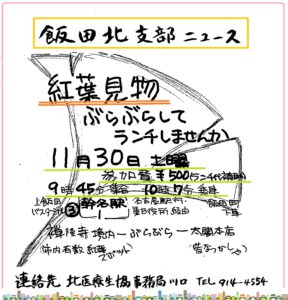 飯田北支部ニュース
紅葉見物
ぶらぶらして
ランチしませんか
11月30日 土曜
参加費 ¥500(ランチ代
9時45分集合 10時7分乗車
上飯田
バスターミナル ③ 幹名駅1
名古屋駅行
東図役所経由
飯田町
下車
境内ーぶらぶらー太閤本店
(市内有数紅葉スポット)
連絡先 北医療生協事務局 川口 TEL 914-4554